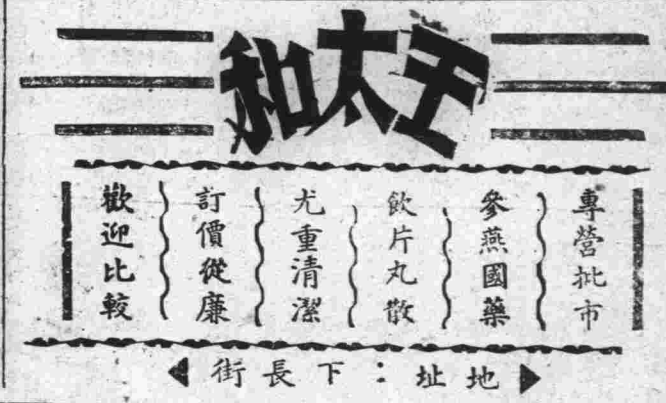 王太和
專營批市
參燕國藥
飲片丸散
尤重清潔
訂價從廉
歡迎比較
地址：下長街